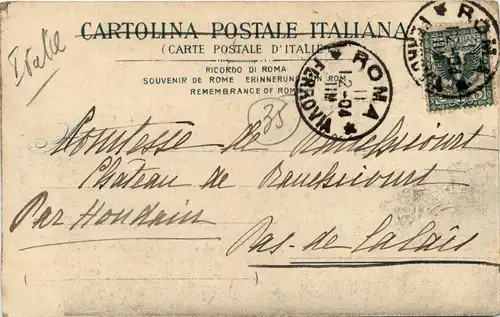 Italie
CARTOLINA POSTALE ITALIANA
(CARTE POSTALE D'ITALIE)
RICORDO DI ROMA
SOUVENIR DE ROME ERINNERUNG ROM
REMEMBRANCE OF ROM
ROMA
FERROVIA
12-04
ROMA
FERROVIA
35
Comtesse de Ranchicourt
Château de Ranchicourt
Par Houdain
Pas-de Calais